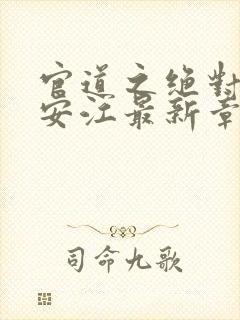 官道之绝對
安江最新章
司命九歌